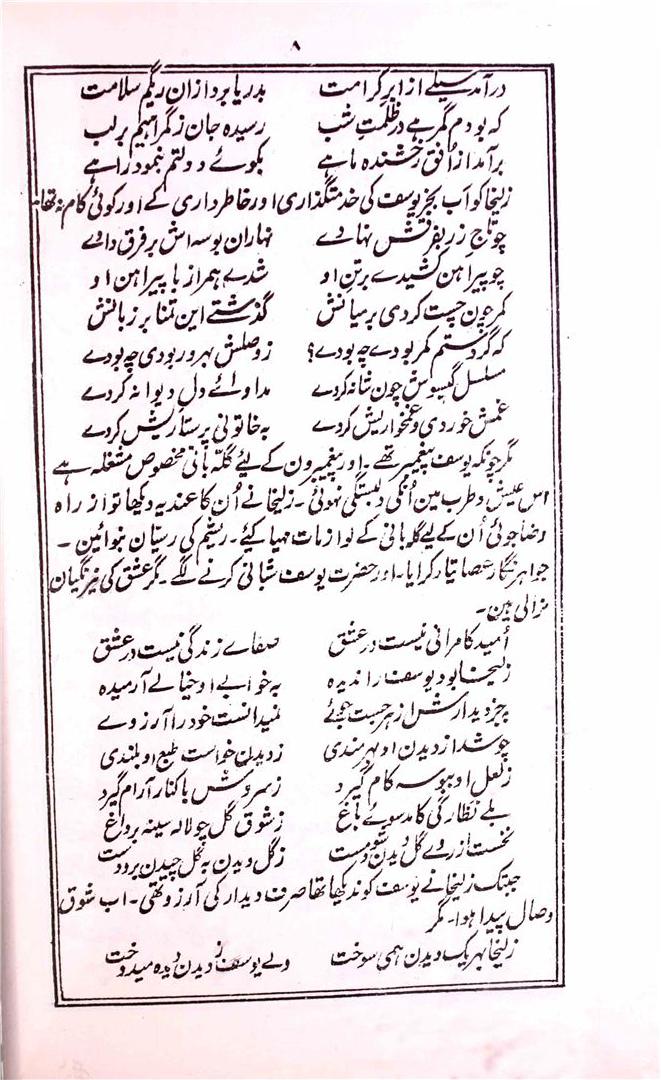 ۸
درآمد سیلے از ابرِ کرامت بدریا برد ازان ریگم سلامت
کہ بودم گمرہے در ظلمتِ شب رسیدہ جان ز گمراہیم بر لب
برآمد از اُفق رخشندہ ماہے بکوئے دولتم بنمود راہے
زلیخا کو اَب بجز یوسف کی خدمتگذاری اور خاطر داری کے اور کوئی کام نہ تھا؎
چو تاجِ زر بفرقش نہادے نہاران بوسہ اش بر فرق دادے
چو پیراہن کشیدے بر تنِ او شدے ہمراز با پیراہن او
کمر چون چست کردی بر میانش گذشتے این تمنا بر زبانش
کہ گر دستم کمر بودے چہ بودے؟ ز وصلش بہرہ ور بودی چہ بودے
مسلسل گیسوش چون شانہ کردے مداوائے دلِ دیوانہ کردے
غمش خوردی و غمخواریش کردے بہ خاتونی پرستاریش کردے
مگر چونکہ یوسف پیغمبر تھے۔ اور پیغمبرون کے لیئے گلّہ بانی مخصوص مشغلہ ہے
اس عیش و طرب مین اُنکی دلبستگی نہوئی۔ زلیخا نے اُن کا عندیہ دیکھا تو از راہ
رضا جوئی اُن کے لیے گلہ بانی کے لوازمات مہیا کیئے۔ ریشم کی رسیّان بنوائین۔
جواہر نگار عصا تیار کرایا۔ اور حضرت یوسف شبانی کرنے لگے۔ مگر عشق کی نیرنگیان
نرالی ہین۔
اُمید کامرانی نیست در عشق صفاے زندگی نیست در عشق
زلیخا بود یوسف را ندیدہ بہ خوابے او خیالے آرمیدہ
بجز دیدارش از ہر جست جوئے نمیدانست خود را آرزوے
چو شد از دیدن او بہرہ مندی ز دیدن خواست طبع او بلندی
ز لعل او ببوسہ کام گیرد ز سروش با کنار آرام گیرد
بلے نظارگی کامد سوے باغ ز شوقِ گل چو لالہ سینہ بر داغ
نخست از روے گل دیدن شود مست ز گل دیدن بہ گل چیدن برد دست
جبتک زلیخا نے یوسف کو ندیکھا تھا صرف دیدار کی آرزو تھی۔ اب شوق
وصال پیدا ہوا۔ مگر
زلیخا بہر یک دیدن ہمی سوخت ولے یوسف ز دیدن دیدہ میدوخت